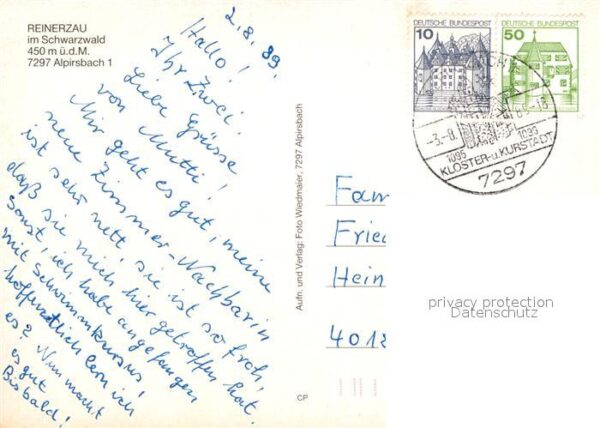 REINERZAU
im Schwarzwald
450 m ü.d.M.
7297 Alpirsbach 1
2.8.89.
Hallo!
Ihr Zwei!
Liebe Grüsse
von Mutti!
Mir geht es gut, meine
neue Zimmer-Nachbarin
ist sehr nett, sie ist so froh,
daß sie mich hier getroffen hat.
Sonst, ich habe angefangen
mit Schwimmkursus!
hoffentlich lern ich
es? Nun macht
es gut
Bisbald!
Aufn. und Verlag: Foto Wiedmaier, 7297 Alpirsbach
CP
10
DEUTSCHE BUNDESPOST
50
DEUTSCHE BUNDESPOST
-3.-8.
-18
1095
1095
KLOSTER-u.KURSTADT
7297
Fam
Fried
Hein
4018
privacy protection
Datenschutz